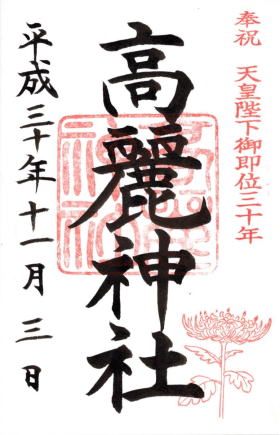 奉祝 天皇陛下御即位三十年
高麗神社
平成三十年十一月三日